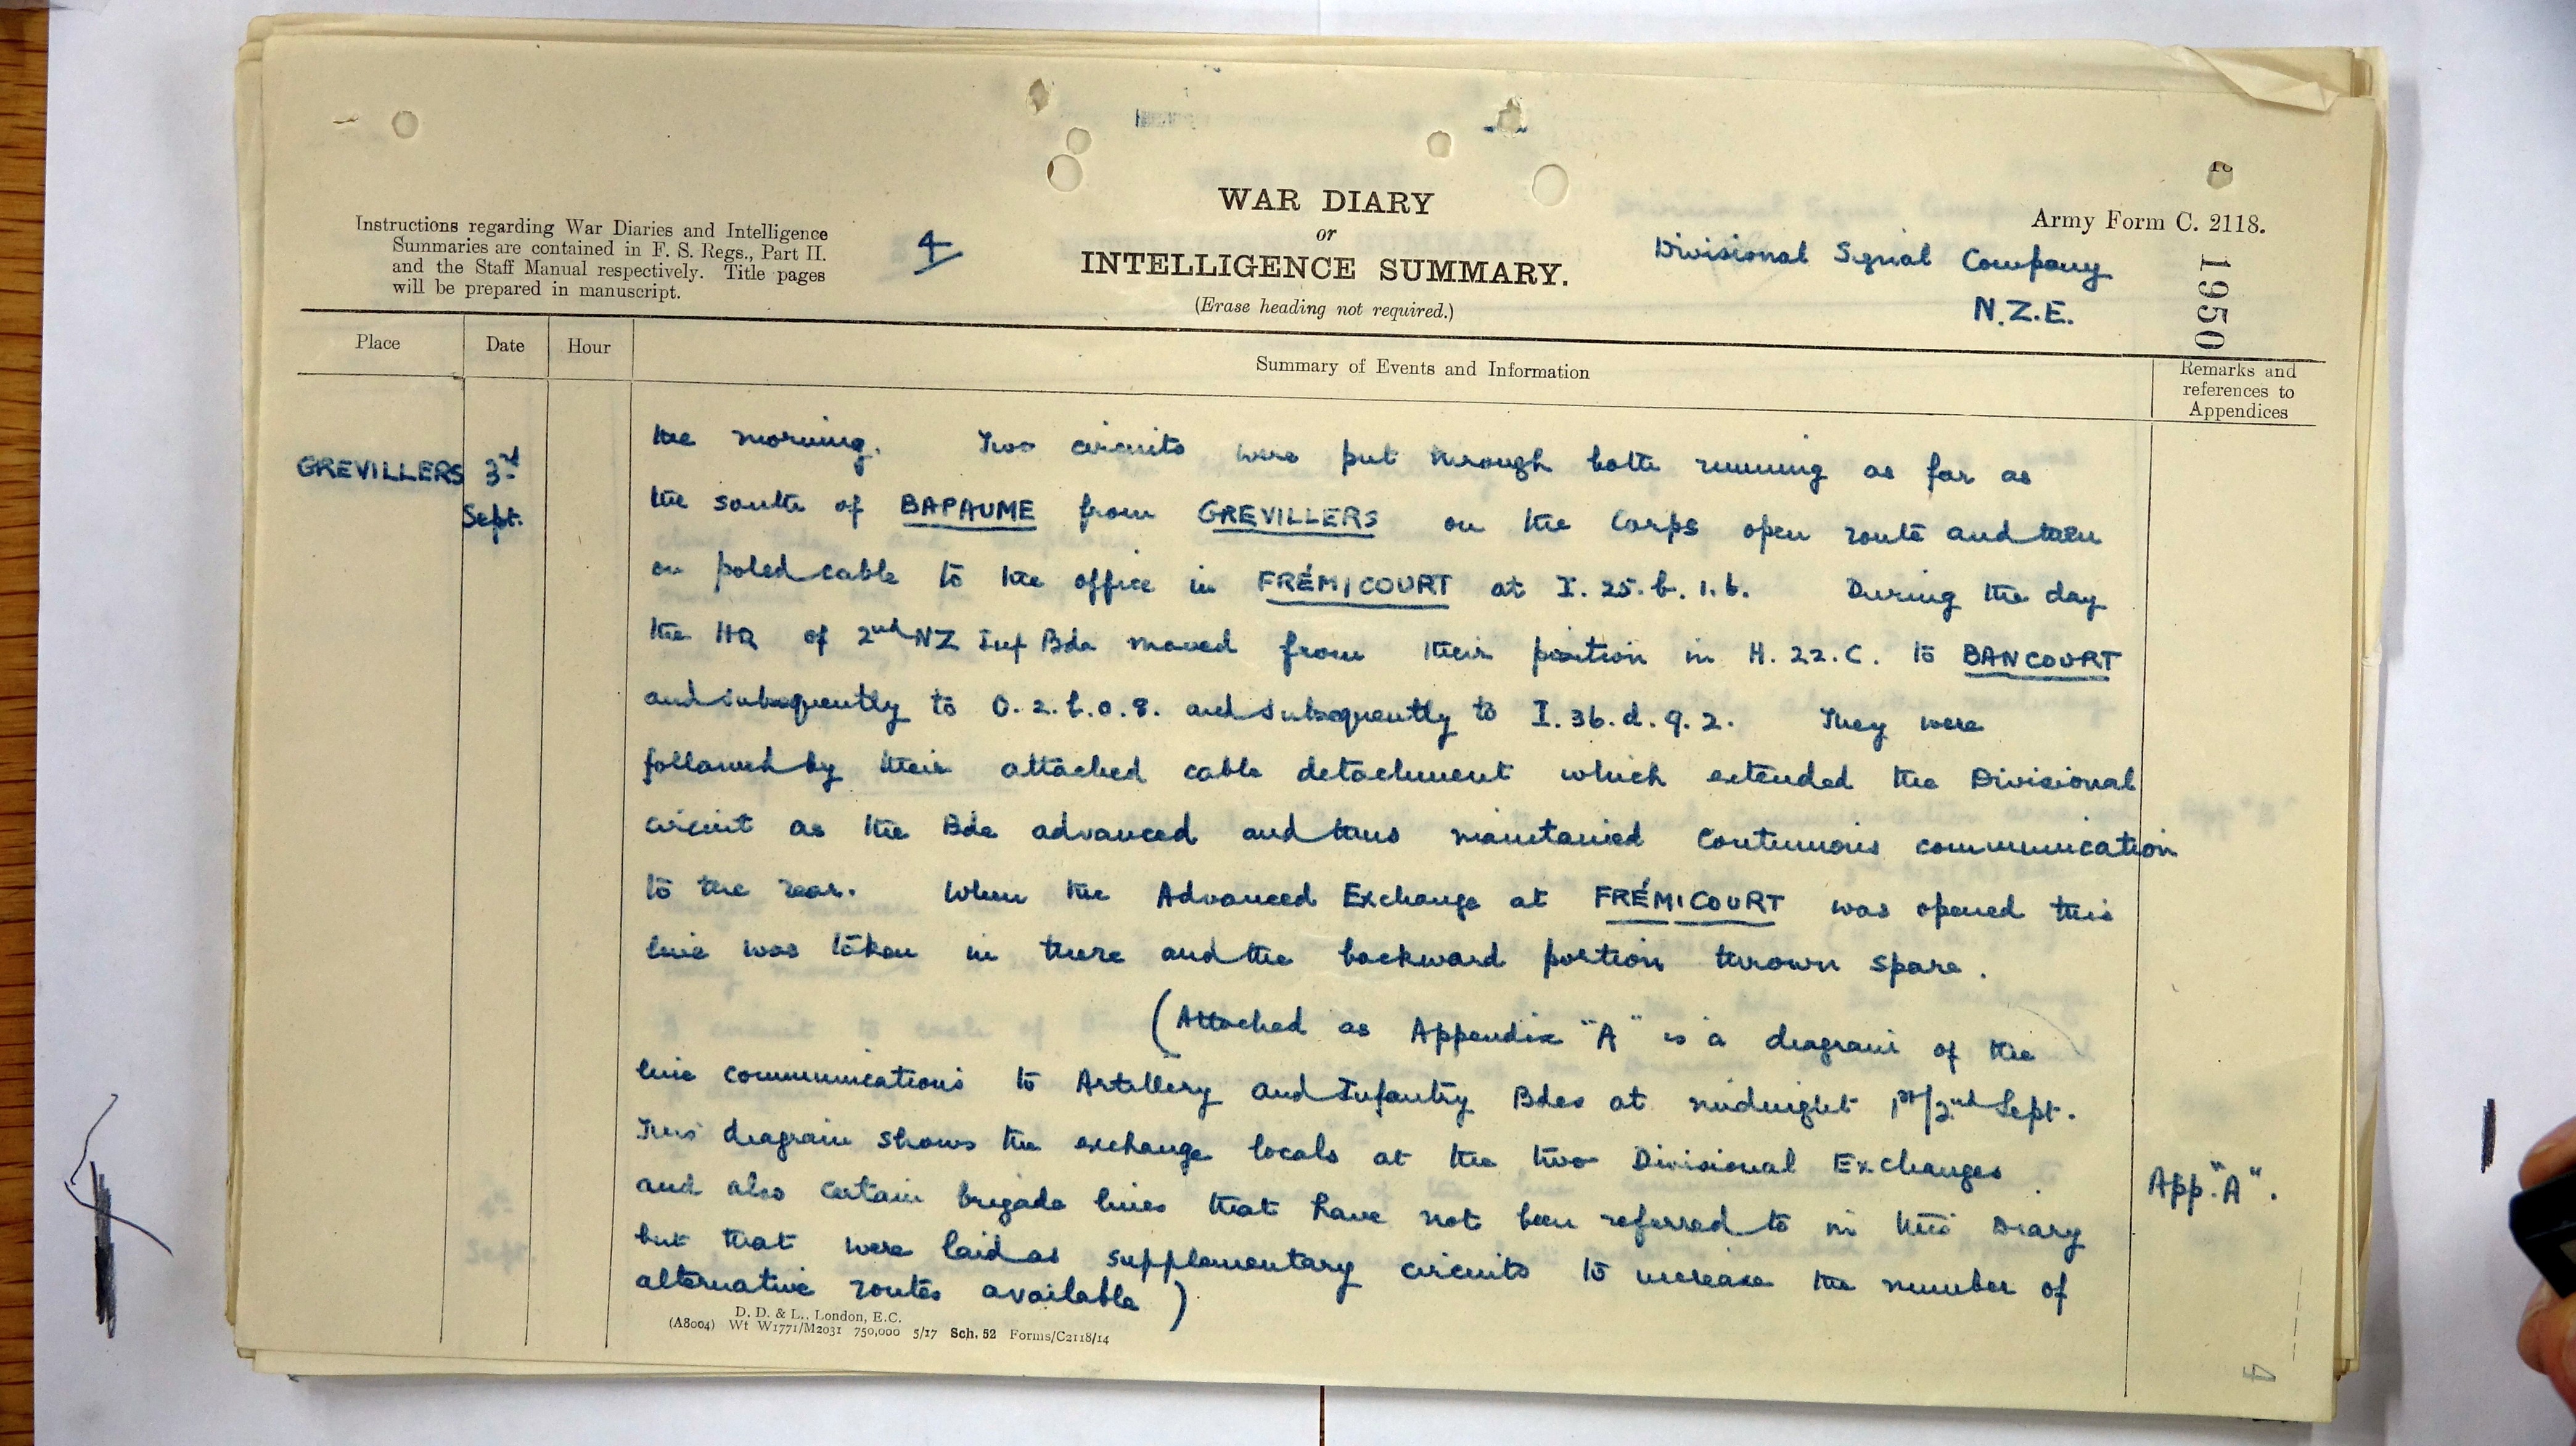 Army Form C. 2118.
WAR DIARY
or
INTELLIGENCE SUMMARY.
(Erase heading not required.)
Instructions regarding War Diaries and Intelligence
Summaries are contained in F. S. Regs., Part II.
and the Staff Manual respectively. Title pages
will be prepared in manuscript.
4
Divisional Signal Company
N.Z.E.
1950
Place
Date
Hour
Summary of Events and Information
Remarks and
references to
Appendices
GREVILLERS
3rd
Sept.
the morning. Two circuits were put through both running as far as
the south of BAPAUME from GREVILLERS on the Corps open route and then
on poled cable to the office in FRÉMICOURT at I. 25. b. 1. 6. During the day
the HQ of 2nd NZ Inf Bde moved from their position in H. 22. C. to BANCOURT
and subsequently to O. 2. b. 0. 8. and subsequently to I. 36. d. 9. 2. They were
followed by their attached cable detachment which extended the Divisional
circuit as the Bde advanced and thus maintained continuous communication
to the rear. When the Advanced Exchange at FRÉMICOURT was opened this
line was taken in there and the backward portion thrown spare.
(Attached as Appendix "A" is a diagram of the
line communications to Artillery and Infantry Bdes at midnight 1st/2nd Sept.
This diagram shows the exchange locals at the two Divisional Exchanges
and also certain brigade lines that have not been referred to in this Diary
but that were laid as supplementary circuits to increase the number of
alternative routes available)
App. "A".
D. D. & L., London, E.C.
(A8004) Wt W1771/M2031 750,000 5/17 Sch. 52 Forms/C2118/14
4